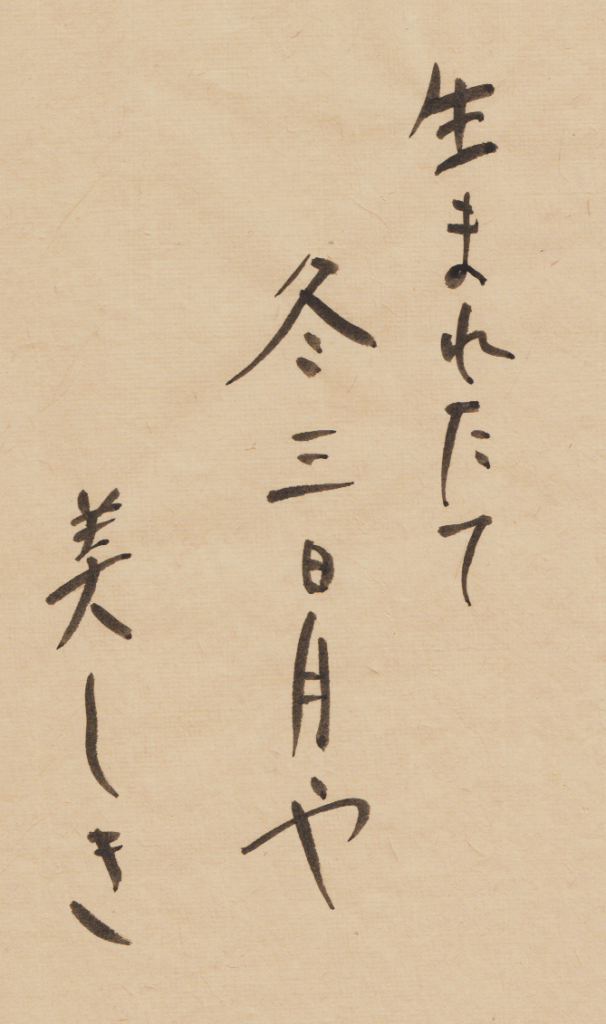 生まれたて
冬三日月や
美しき